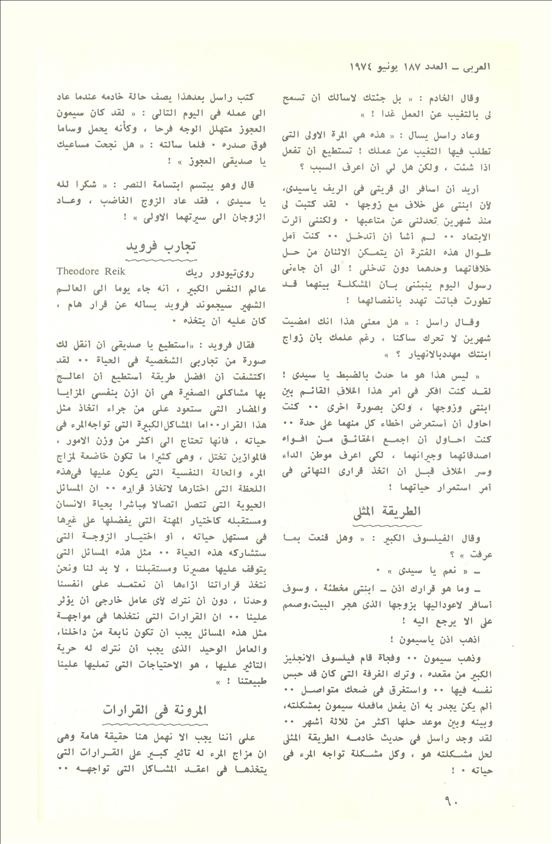 العربى – العدد ١٨٧ يونيو ١٩٧٤
وقال الخادم : « بل جئتك لاسالك أن تسمح
لى بالتغيب عن العمل غدا ! »
وعاد راسل يسال : « هذه هي المرة الاولى التى
تطلب فيها التغيب عن عملك ! تستطيع أن تفعل
اذا شئت ، ولكن هل لي أن اعرف السبب ؟
أريد أن اسافر الى قريتى فى الريف ياسيدى،
لأن ابنتى على خلاف مع زوجها ٠ لقد كتبت لى
منذ شهرين تحدثنى عن متاعبها ٠ ولكننى آثرت
الابتعاد ٠٠ لم أشأ أن أتدخل ٠٠ كنت آمل
طوال هذه الفترة أن يتمكن الاثنان من حل
خلافاتهما وحدهما دون تدخلى ! الى أن جاءنى
رسول اليوم ينبئنى بأن المشكلة بينهما قد
تطورت فباتت تهدد بانفصالهما !
وقال راسل : « هل معنى هذا انك امضيت
شهرين لا تحرك ساكنا ، رغم علمك بأن زواج
ابنتك مهددبالانهيار ؟ »
« ليس هذا هو ما حدث بالضبط يا سيدى !
لقد كنت افكر فى أمر هذا الخلاف القائم بين
ابنتى وزوجها ، ولكن بصورة اخرى ٠٠ كنت
احاول أن أستعرض اخطاء كل منهما على حدة ٠٠
كنت احاول أن اجمع الحقائق من افواه
اصدقائهما وجيرانهما ، لكى اعرف موطن الداء
وسر الخلاف قبل أن اتخذ قرارى النهائى فى
أمر استمرار حياتهما !
الطريقة المثلى
وقال الفيلسوف الكبير : « وهل قنعت بما
عرفت » ؟
– « نعم يا سيدى » ٠
– وما هو قرارك اذن – ابنتى مخطئة ، وسوف
أسافر لاعودالبها بزوجها الذى هجر البيت،وصمم
على الا يرجع اليه !
اذهب اذن ياسيمون !
وذهب سيمون ٠٠ وفجأة قام فيلسوف الانجليز
الكبير من مقعده ، وترك الغرفة التى كان قد حبس
نفسه فيها ٠٠ واستغرق فى ضحك متواصل ٠٠
ألم يكن يجدر به أن يفعل مافعله سيمون بمشكلته،
وبينه وبين موعد حلها أكثر من ثلاثة أشهر ٠٠
لقد وجد راسل فى حديث خادمه الطريقة المثلى
لحل مشكلته هو ، وكل مشكلة تواجه المرء فى
حياته ٠ !
كتب راسل بعدهذا يصف حالة خادمه عندما عاد
الى عمله فى اليوم التالى : « لقد كان سيمون
العجوز متهلل الوجه فرحا ، وكأنه يحمل وساما
فوق صدره ٠ فلما سألته : « هل نجحت مساعيك
يا صديقى العجوز » !
قال وهو يبتسم ابتسامة النصر : « شكرا لله
يا سيدى ، فقد عاد الزوج الغاضب ، وعاد
الزوجان الى سيرتهما الاولى » !
تجارب فرويد
روىتيودور ريك Theodore Reik
عالم النفس الكبير ، أنه جاء يوما الى العالم
الشهير سيجموند فرويد يسأله عن قرار هام ،
كان عليه أن يتخذه ٠
فقال فرويد : «استطيع يا صديقى أن أنقل لك
صورة من تجاربى الشخصية فى الحياة ٠٠ لقد
اكتشفت أن افضل طريقة أستطيع أن أعالج
بها مشاكلى الصغيرة هى أن ازن بنفسى المزايا
والمضار التى ستعود على من جراء اتخاذ مثل
هذا القرار٠٠اما المشاكل الكبيرة التى تواجه المرء فى
حياته ، فانها تحتاج الى اكثر من وزن الامور ،
فالموازين تختل ، وهى كثيرا ما تكون خاضعة لمزاج
المرء والحالة النفسية التى يكون عليها فىهذه
اللحظة التى اختارها لاتخاذ قراره ٠٠ ان المسائل
الحيوية التى تتصل اتصالا مباشرا بحياة الانسان
ومستقبله كاختيار المهنة التى يفضلها على غيرها
فى مستهل حياته ، أو اختيار الزوجة التى
ستشاركه هذه الحياة ٠٠ مثل هذه المسائل التى
يتوقف عليها مصيرنا ومستقبلنا ، لا بد لنا ونحن
نتخذ قراراتنا ازاءها أن نعتمد على انفسنا
وحدنا ، دون أن نترك لأى عامل خارجى أن يؤثر
علينا ٠٠ ان القرارات التى نتخذها فى مواجهة
مثل هذه المسائل يجب أن تكون نابعة من داخلنا،
والعامل الوحيد الذى يجب أن نترك له حرية
التأثير علينا ، هو الاحتياجات التى تمليها علينا
طبيعتنا ! »
المرونة فى القرارات
على أننا يجب الا نهمل هنا حقيقة هامة وهى
ان مزاج المرء له تأثير كبير على القرارات التى
يتخذها فى اعقد المشاكل التى تواجهه ٠٠
٩٠